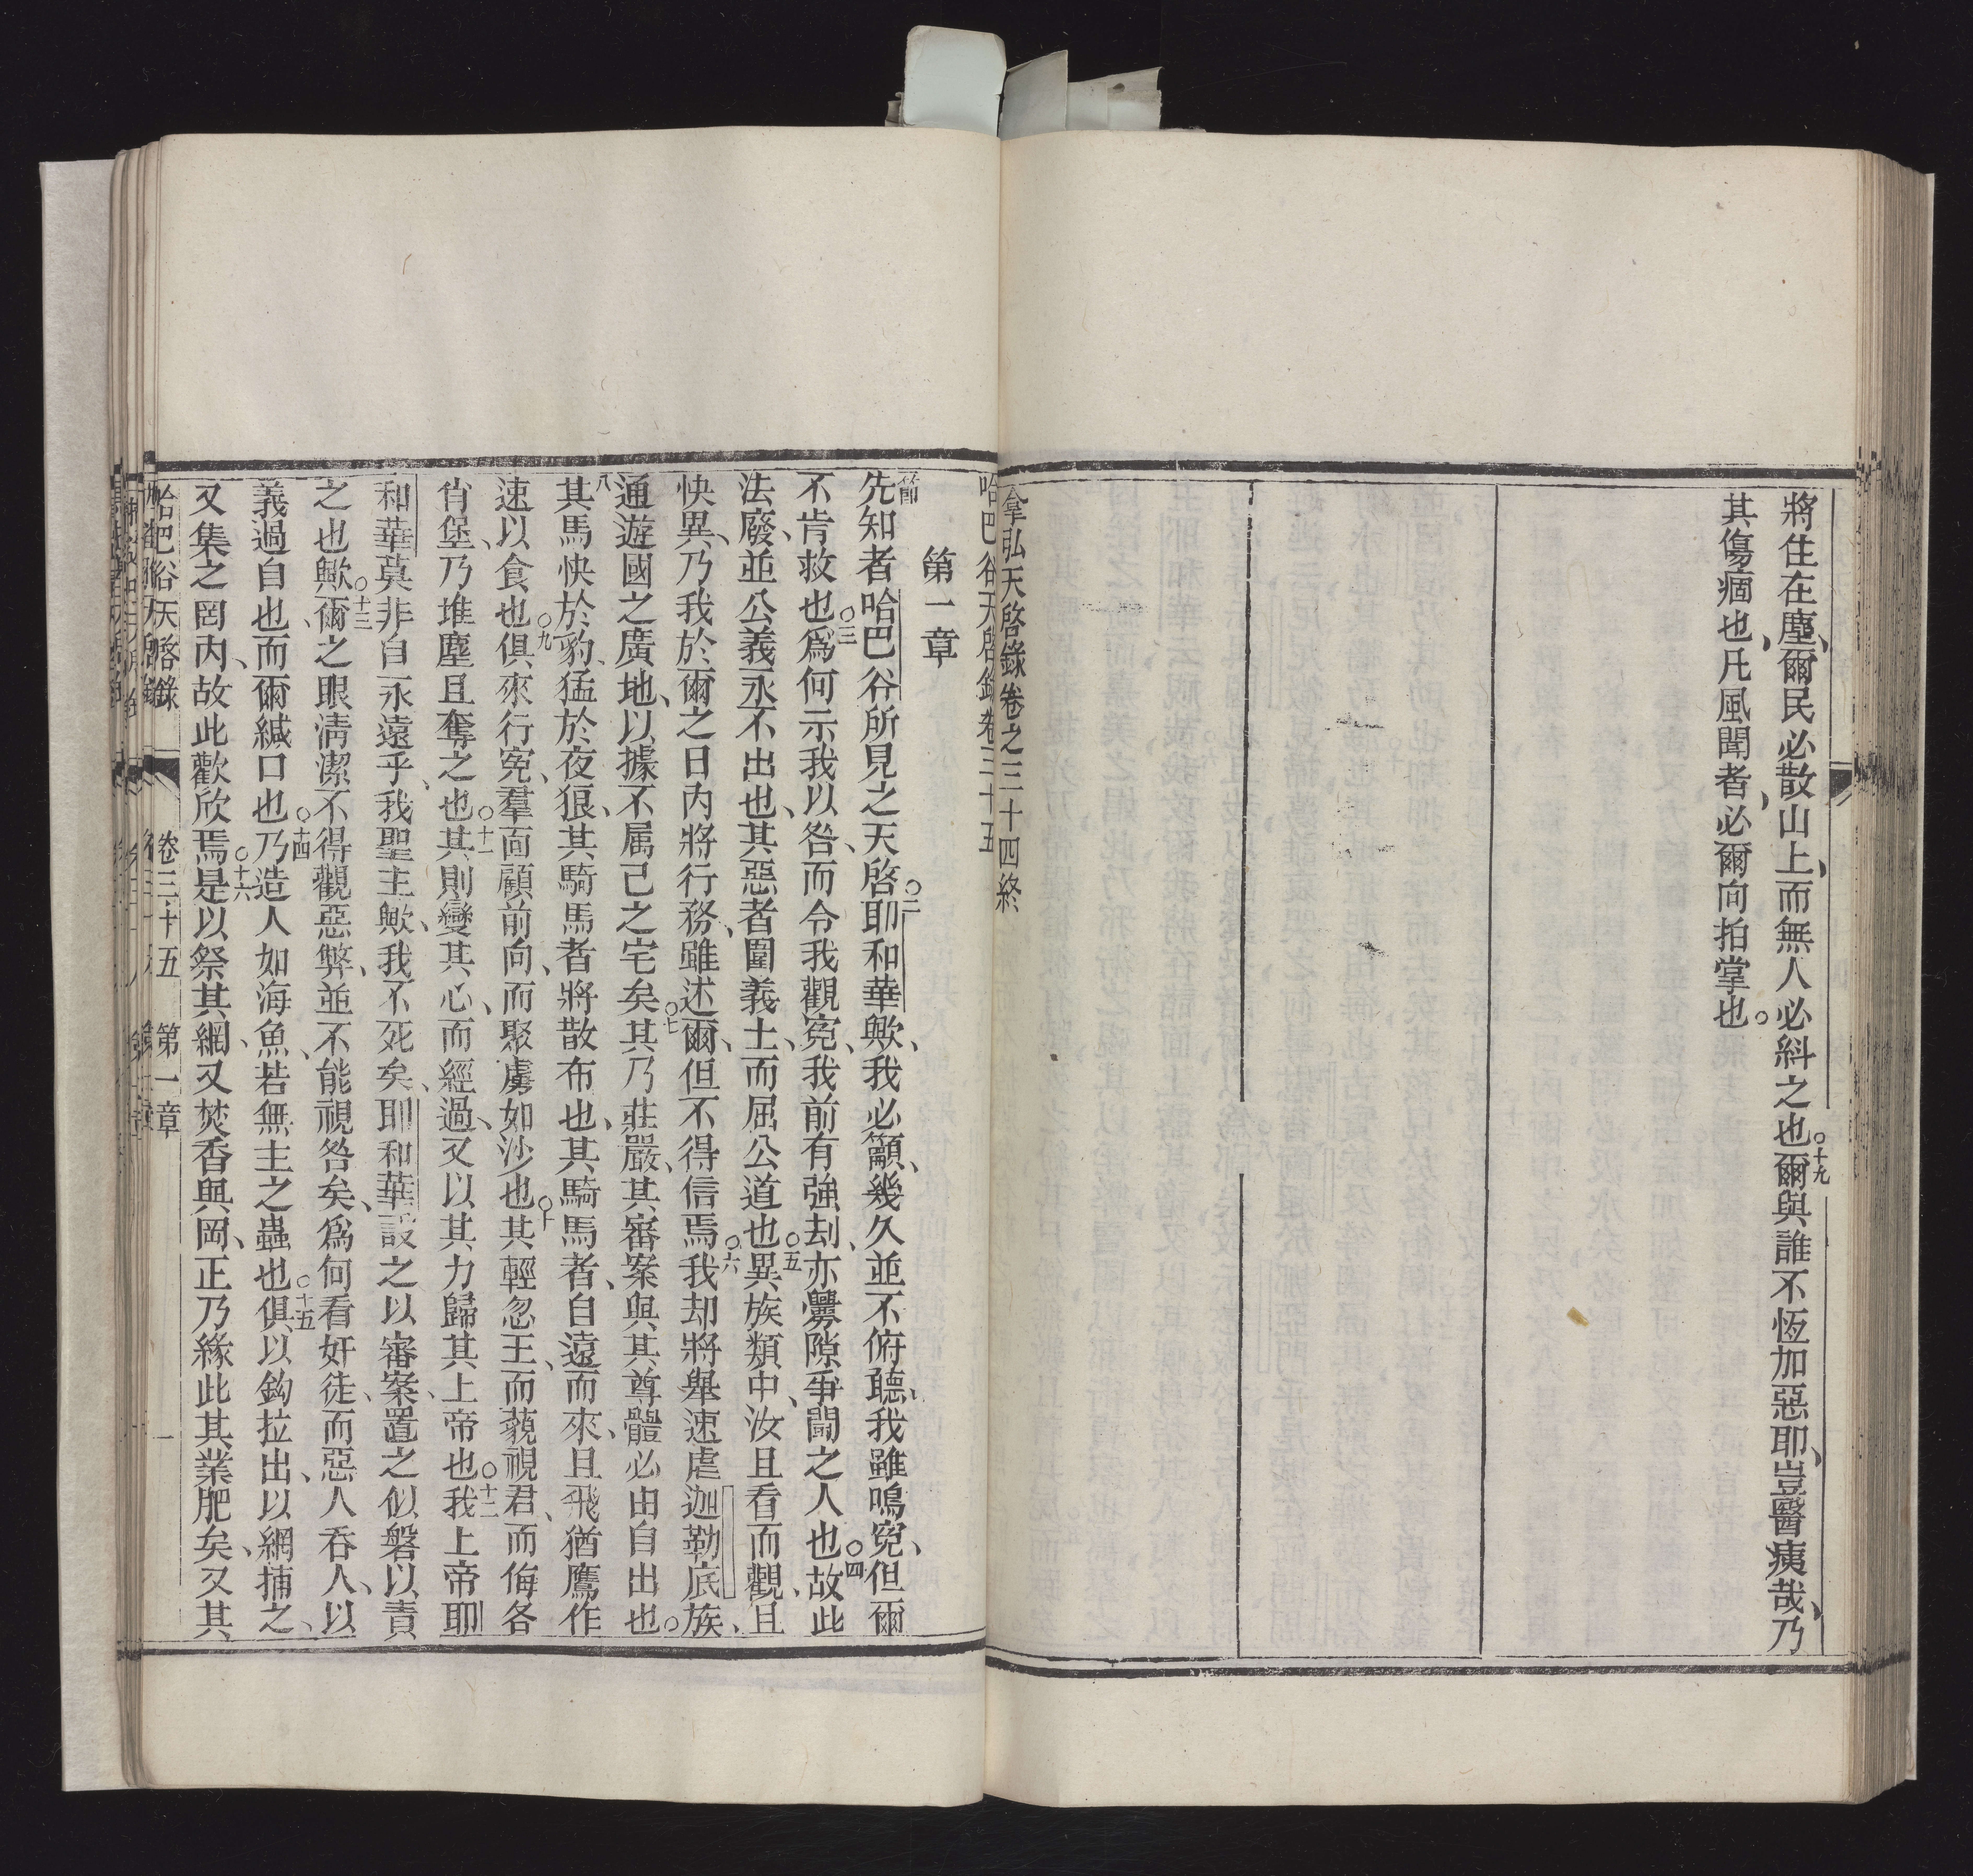 將住在塵、爾民必散山上、而無人必糾之也○十九爾與誰不恆加惡耶、豈醫痍哉、乃
其傷痼也、凡風聞者、必爾向拍掌也○
拿弘天啓錄卷之三十四終
哈巴谷天啓錄卷三十五
第一章
節先知者哈巴谷所見之天啓○二耶和華歟、我必籲、幾久並不俯聽、我雖鳴寃、但爾
不肯救也○三爲何示我以咎、而令我觀寃、我前有強刦、亦釁隙爭鬭之人也○四故此
法廢、並公義永不出也、其惡者圍義士、而屈公道也○五異族類中、汝且看而觀、且
快異、乃我於爾之日內將行務、雖述爾、但不得信焉○六我却將舉速虐迦勒底族、
通遊國之廣地、以據不属己之宅矣○七其乃莊嚴、其審案與其尊體必由自出也○
八其馬快於豹、猛於夜狼、其騎馬者將散布也、其騎馬者、自遠而來、且飛猶鷹作
速以食也○九俱來行寃、羣面顧前向、而聚虜如沙也○十其輕忽王、而藐視君、而侮各
肖堡、乃堆塵且奪之也○十一其則變其心、而經過、又以其力歸其上帝也○十二我上帝耶
和華莫非自永遠乎、我聖主歟、我不死矣、耶和華設之以審案、置之似磐以責
之也歟○十三、爾之眼淸潔不得觀惡弊、並不能視咎矣、爲何看奸徒、而惡人吞人、以
義過自也而爾緘口也○十四乃造人如海魚、若無主之蟲也○十五俱以鈎拉出、以網捕之、
又集之罔內、故此歡欣焉○十六是以祭其網、又焚香與岡、正乃緣此其業肥矣、又其
哈巴谷天啓錄 卷三十五 第一章 一